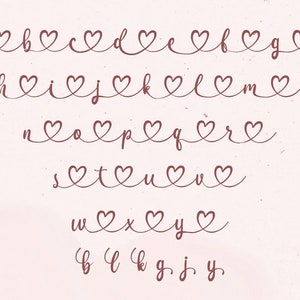 b c d e f g
h i j k l m
n o p q r
s t u v
w x y
b l k g j y